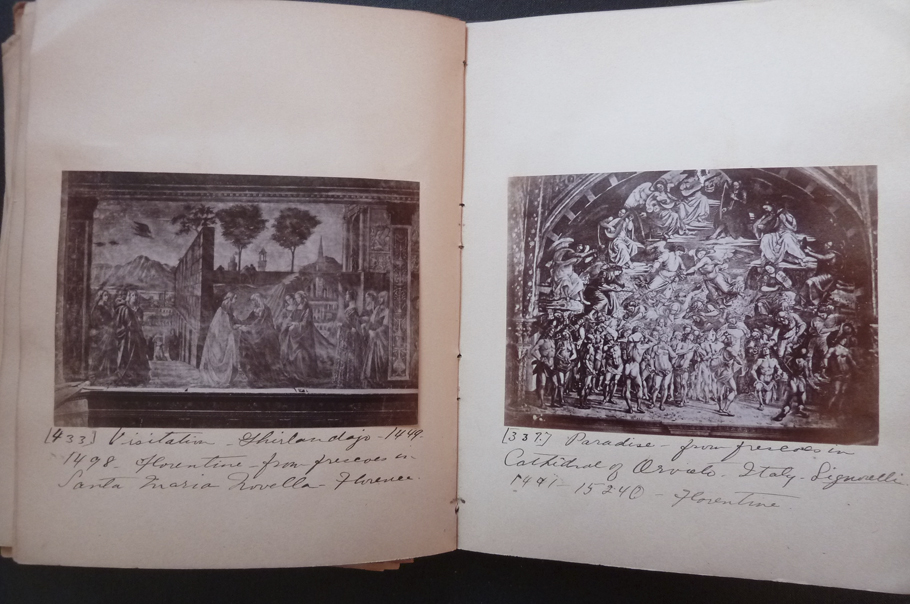 [433] Visitation - Ghirlandajo - 1449-
1498 - Florentine - from frescoes in
Santa Maria Novella - Florence.
[337] Paradise - from frescoes in
Cathedral of Orvieto - Italy - Signorelli
1441 - 15240 - Florentine